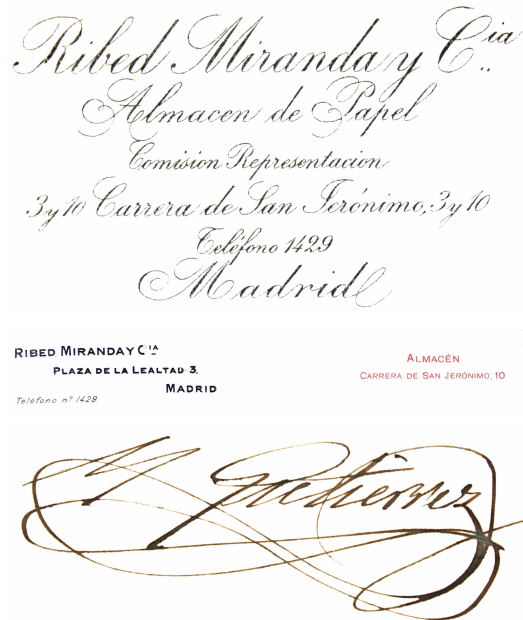 Ribed Miranda y Cia..
Almacen de Papel
Comision Representacion
3 y 10 Carrera de San Jerónimo, 3 y 10
Teléfono 1429
Madrid
RIBED MIRANDA Y CIA
PLAZA DE LA LEALTAD 3.
MADRID
Teléfono nº 1429
ALMACÉN
CARRERA DE SAN JERÓNIMO, 10
Gutierrez